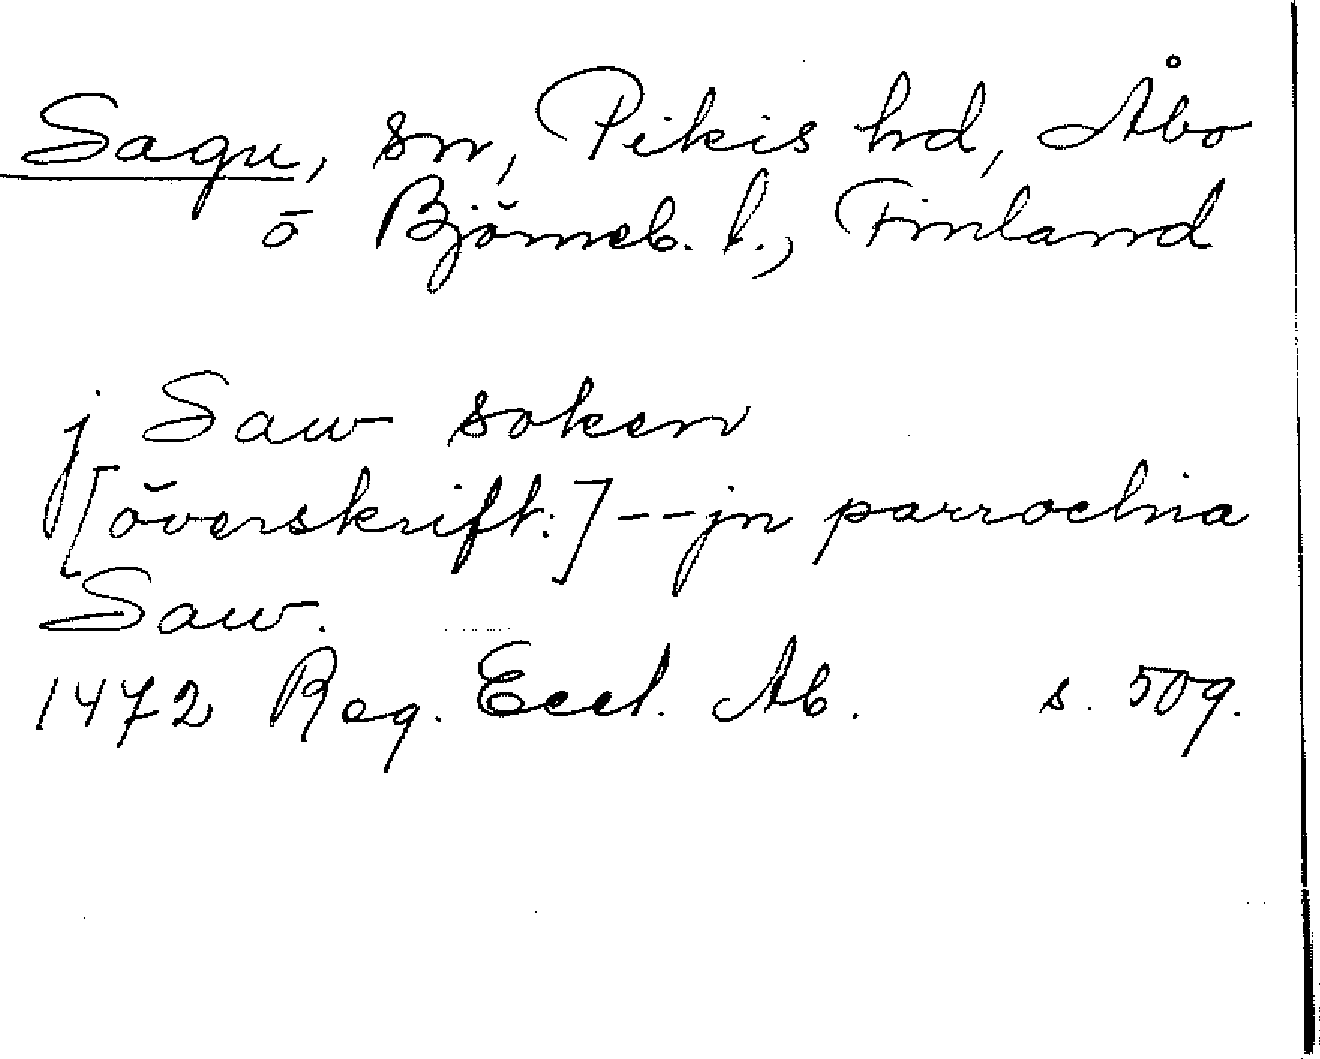 Sagu, sn, Pikis hd, Åbo
o Björneb. l., Finland
j Saw soken
[överskrift:]--jn parrochia
Saw.
1472 Reg. Eccl. Ab. s. 509.